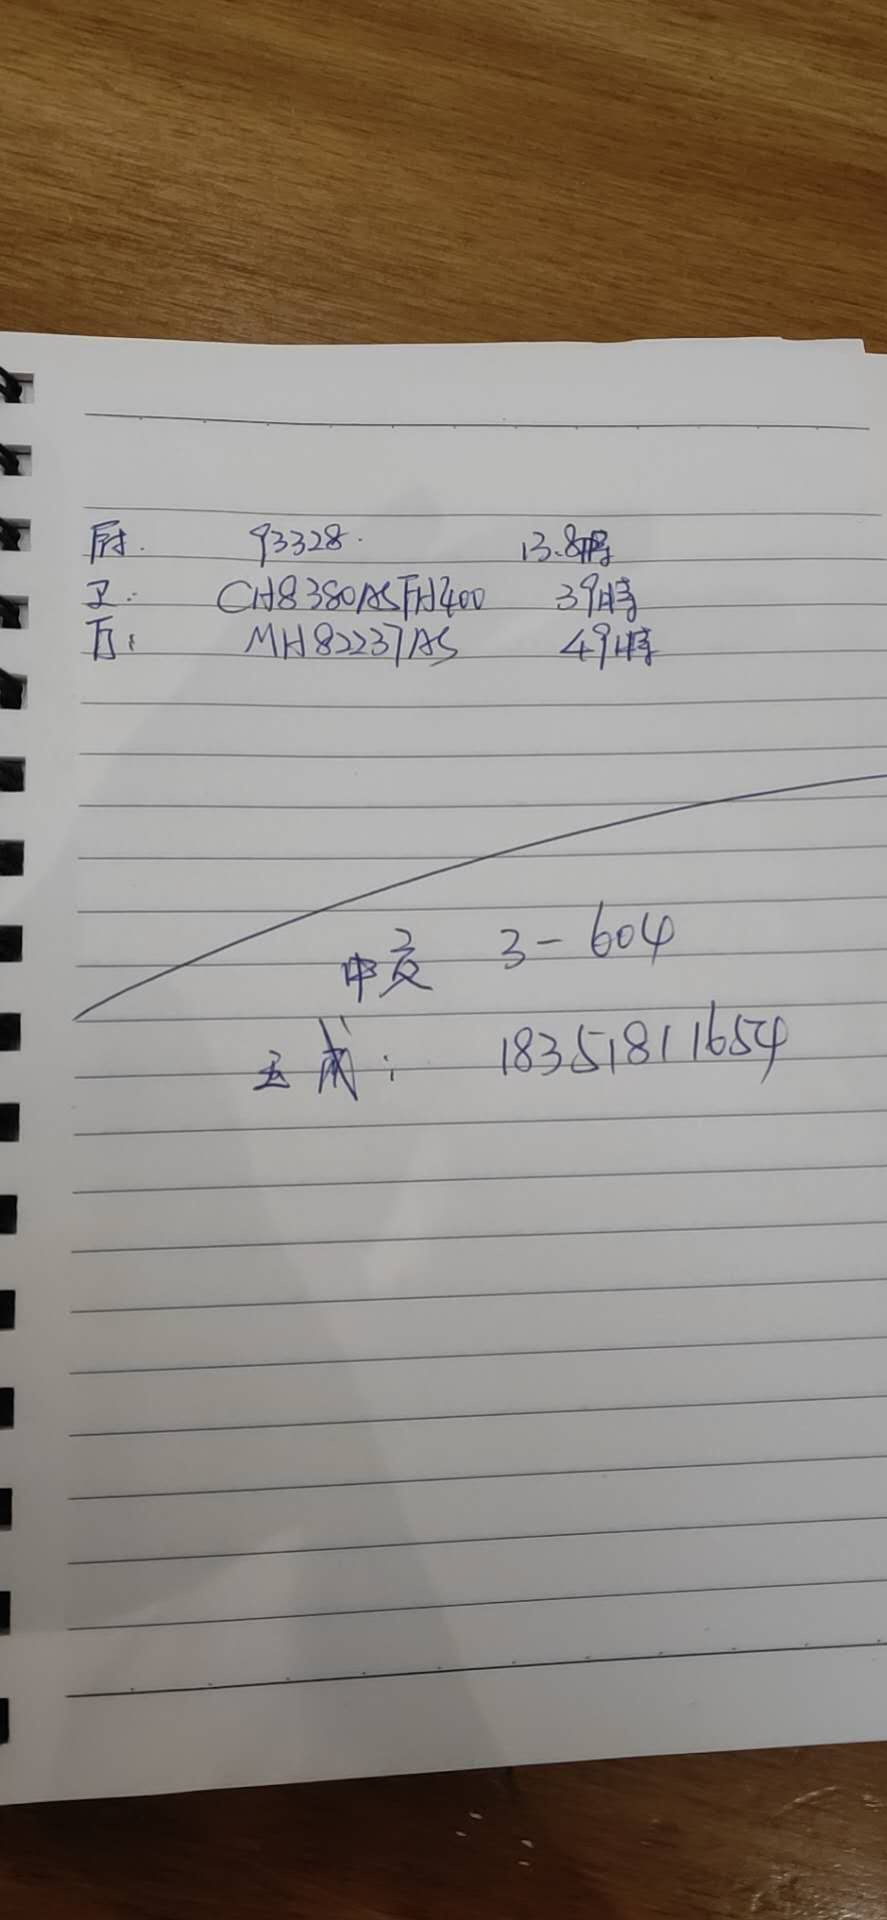 厨. 93328. 13.8嗨
卫: CH8380ASFH400 39嗨
万: MH82237AS 49嗨
中交 3-604
王成: 18351811654